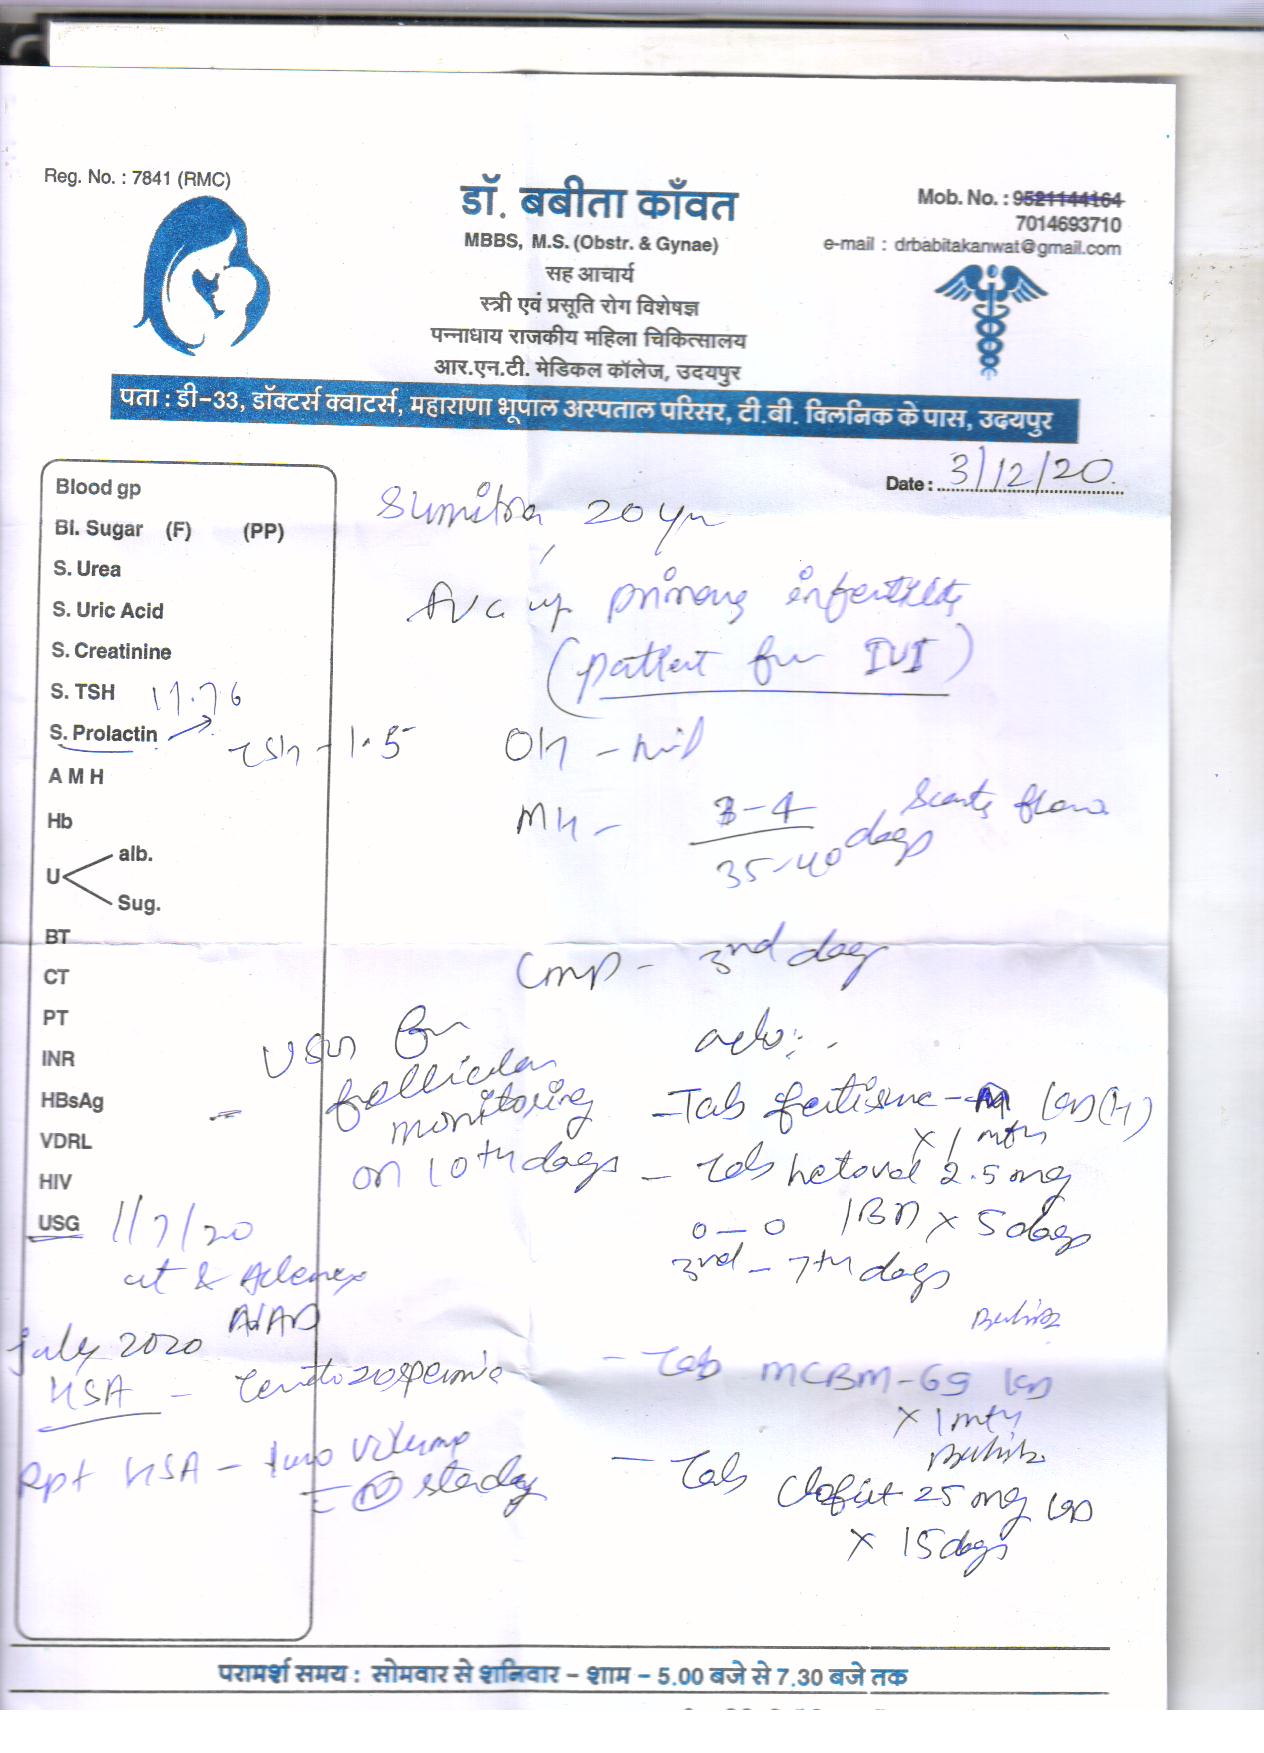 Reg. No. : 7841 (RMC)
डॉ. बबीता काँवत
MBBS, M.S. (Obstr. & Gynae)
सह आचार्य
स्त्री एवं प्रसूति रोग विशेषज्ञ
पन्नाधाय राजकीय महिला चिकित्सालय
आर.एन.टी. मेडिकल कॉलेज, उदयपुर
Mob. No. : 9521144164
7014693710
e-mail : drbabitakanwat@gmail.com
पता : डी-33, डॉक्टर्स क्वाटर्स, महाराणा भूपाल अस्पताल परिसर, टी.बी. क्लिनिक के पास, उदयपुर
Date : 3/12/20.
Sumitra, 20 yr
primary infertility
(patient for IUI)
OH - nil
MH - 3-4 days Scanty flow
35-40
LMP - 3rd day
adv:.
- Tab
x 1 mth
- Tab Letoval 2.5 mg
0-0 1BD x 5 days
3rd - 7th days
- Tab MCBM-69
x 1 mth
- Tab 25 mg
x 15 days
Blood gp
Bl. Sugar (F) (PP)
S. Urea
S. Uric Acid
S. Creatinine
S. TSH 17.76
S. Prolactin TSH - 1.5
A M H
Hb
U alb.
Sug.
BT
CT
PT
INR
HBsAg
VDRL
HIV
USG 1/7/20
ut & Adenexa
NAD
USG for
follicular
monitoring
on 10th days
July 2020
HSA -
Rpt HSA - two
परामर्श समय : सोमवार से शनिवार - शाम - 5.00 बजे से 7.30 बजे तक